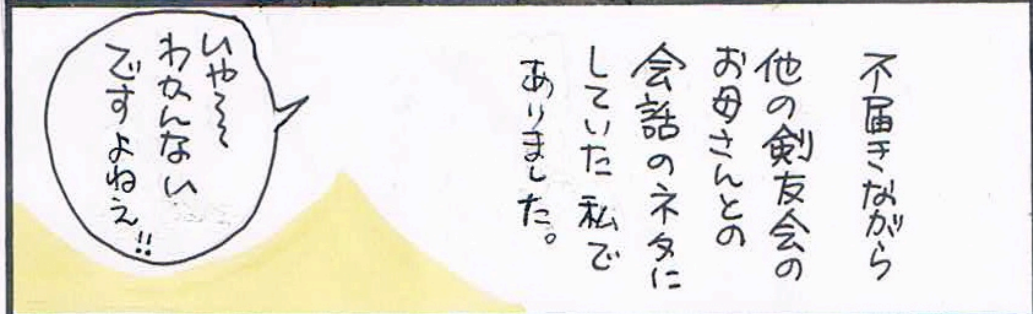 不届きながら
他の剣友会の
お母さんとの
会話のネタに
していた 私で
ありました。
いや~~
わかんない
ですよねえ!!